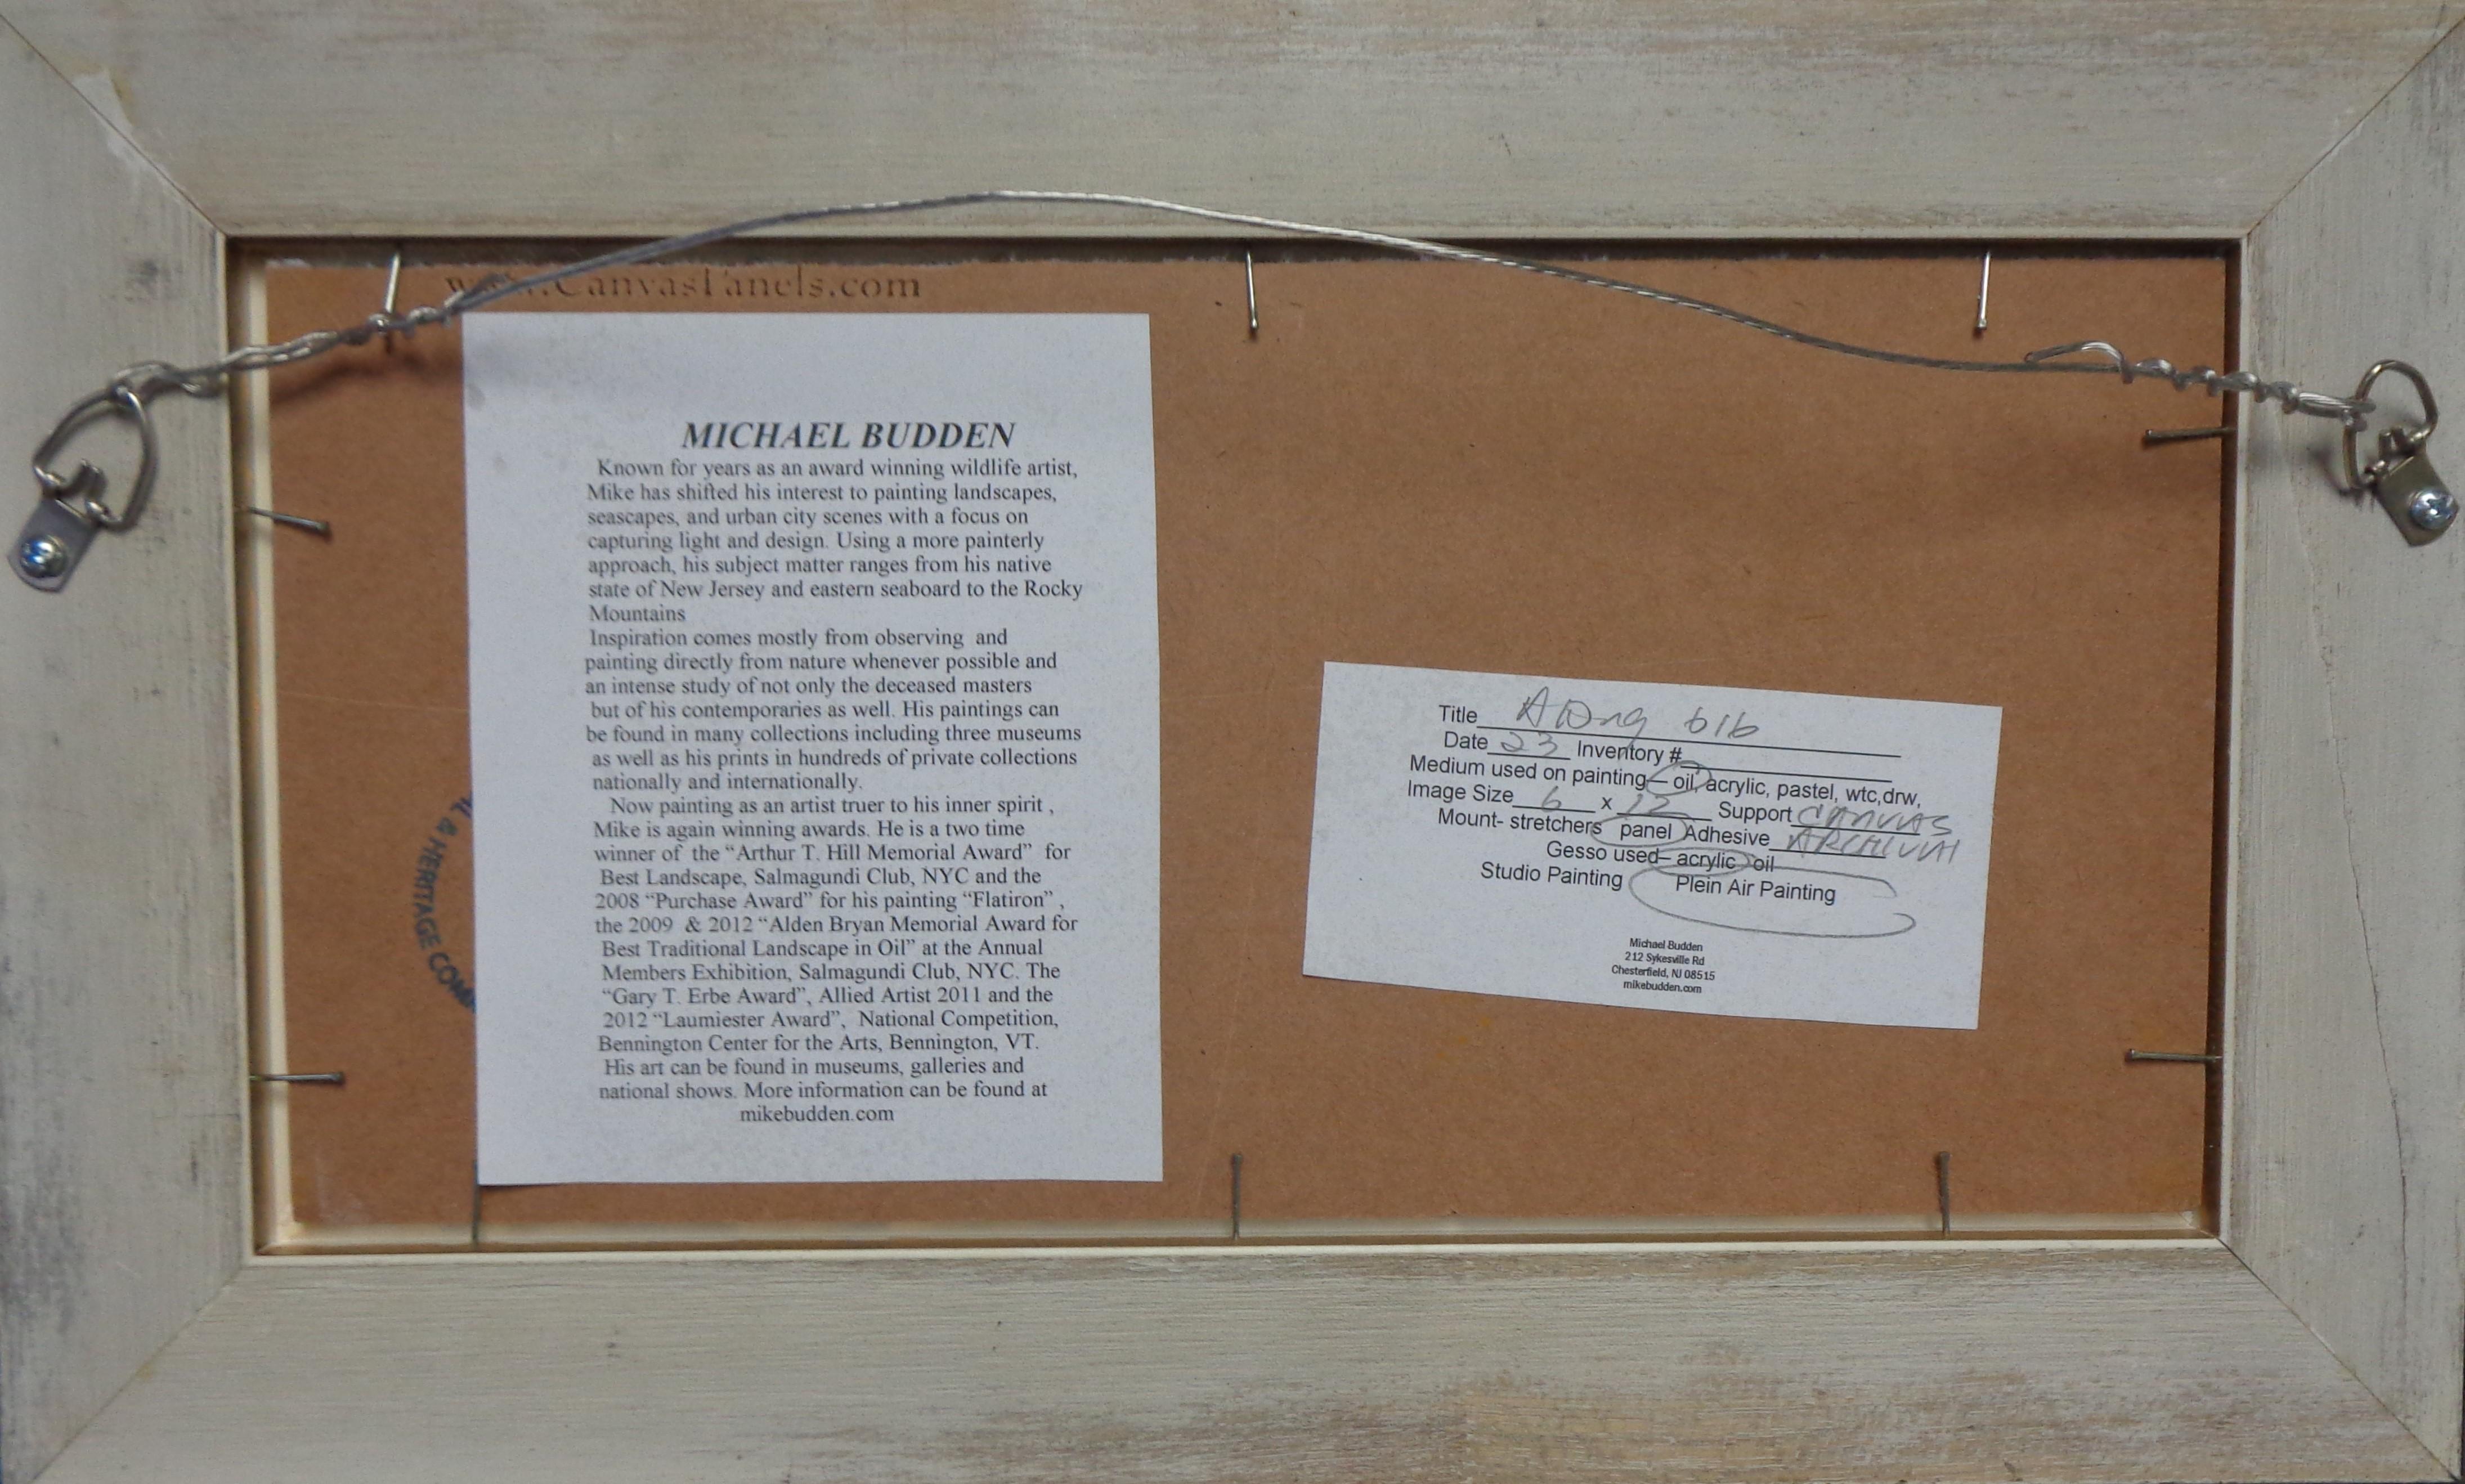 www.CanvasPanels.com
MICHAEL BUDDEN
Known for years as an award winning wildlife artist,
Mike has shifted his interest to painting landscapes,
seascapes, and urban city scenes with a focus on
capturing light and design. Using a more painterly
approach, his subject matter ranges from his native
state of New Jersey and eastern seaboard to the Rocky
Mountains
Inspiration comes mostly from observing and
painting directly from nature whenever possible and
an intense study of not only the deceased masters
but of his contemporaries as well. His paintings can
be found in many collections including three museums
as well as his prints in hundreds of private collections
nationally and internationally.
Now painting as an artist truer to his inner spirit ,
Mike is again winning awards. He is a two time
winner of the “Arthur T. Hill Memorial Award” for
Best Landscape, Salmagundi Club, NYC and the
2008 “Purchase Award” for his painting “Flatiron” ,
the 2009 & 2012 “Alden Bryan Memorial Award for
Best Traditional Landscape in Oil” at the Annual
Members Exhibition, Salmagundi Club, NYC. The
“Gary T. Erbe Award”, Allied Artist 2011 and the
2012 “Laumiester Award”, National Competition,
Bennington Center for the Arts, Bennington, VT.
His art can be found in museums, galleries and
national shows. More information can be found at
mikebudden.com
& HERITAGE
Title Along 616
Date 23 Inventory #
Medium used on painting— oil, acrylic, pastel, wtc,drw,
Image Size 6 x 12 Support CANVAS
Mount- stretchers panel Adhesive ARCHIVAL
Gesso used– acrylic oil
Studio Painting Plein Air Painting
Michael Budden
212 Sykesville Rd
Chesterfield, NJ 08515
mikebudden.com